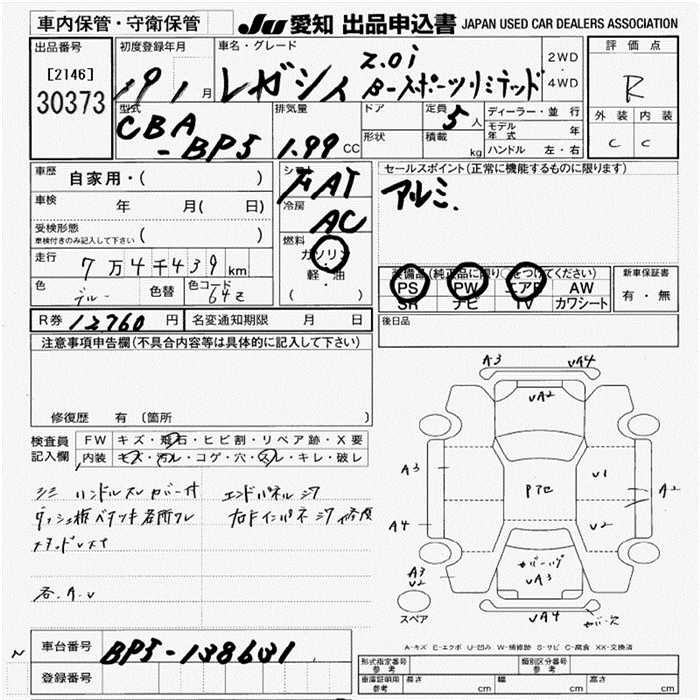 車内保管・守衛保管
JU 愛知 出品申込書 JAPAN USED CAR DEALERS ASSOCIATION
出品番号
[2146]
30373
初度登録年月
19 1 月
車名・グレード
2.0i
レガシィ B-スポーツリミテッド
2WD
4WD
評価点
R
外装 内装
C C
型式
CBA
-BP5
排気量
1.99 CC
ドア
形状
定員
5人
積載
kg
ディーラー・並行
モデル年式 年
ハンドル 左・右
車歴
自家用・( )
車検
年 月( 日)
受検形態
車検付きのみ記入して下さい ( )
走行
7万4千439km
色
ブルー
色替
色コード
64Z
FAT
冷房
AC
燃料
ガソリン
・
軽・油
( )
セールスポイント(正常に機能するものに限ります)
アルミ.
装備品(純正品に限り○をつけてください)
PS PW エアB AW
SR ナビ TV カワシート
新車保証書
有・無
R券 12760 円
名変通知期限 月 日
後日品
注意事項申告欄(不具合内容等は具体的に記入して下さい)
修復歴 有 (箇所
検査員
記入欄
FW キズ・飛石・ヒビ割・リペア跡・X要
内装 キズ・汚レ・コゲ・穴・スレ・キレ・破レ
シミ ハンドルスレ カバー付
エンドパネルシワ
各.A.U
A3
UA4
UA2
A3
U1
A2
Pアセ
A4
U2
A3
U2
UA3
UA4
スペア
A-キズ E-エクボ U-凹み W-補修跡 S-サビ C-腐食 XX-交換済
車台番号
BP5-138631
登録番号
形式指定番号
参考
類別区分番号
参考
車庫証明用
参考
長さ cm
幅 cm
高さ cm